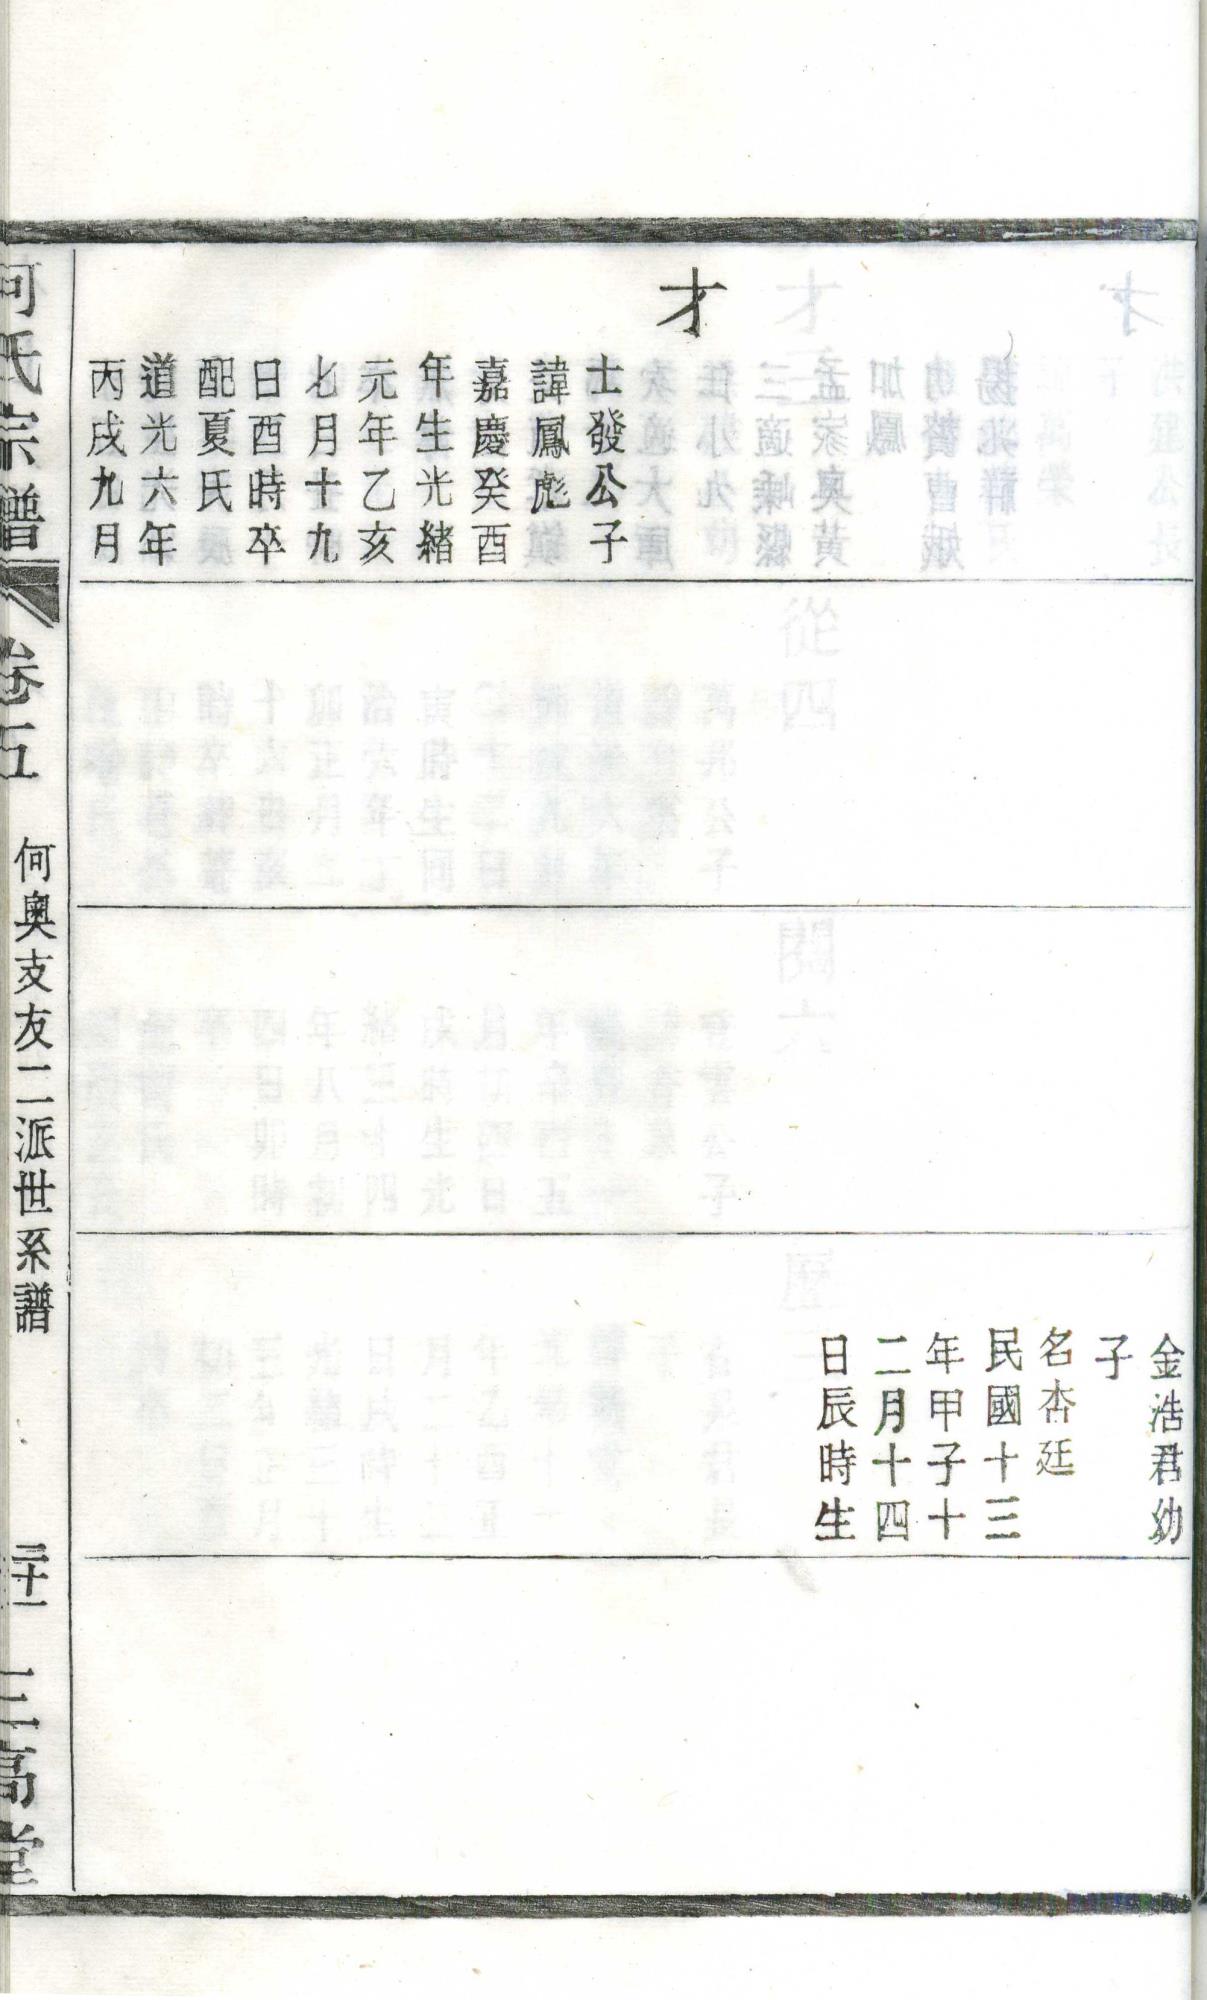 才
士發公子
諱鳳彪
嘉慶癸酉
年生光緒
元年乙亥
七月十九
日酉時卒
配夏氏
道光六年
丙戌九月
金浩君幼
子
名杏廷
民國十三
年甲子十
二月十四
日辰時生
何氏宗譜
卷五
何奧支友二派世系譜
三十一
三高堂